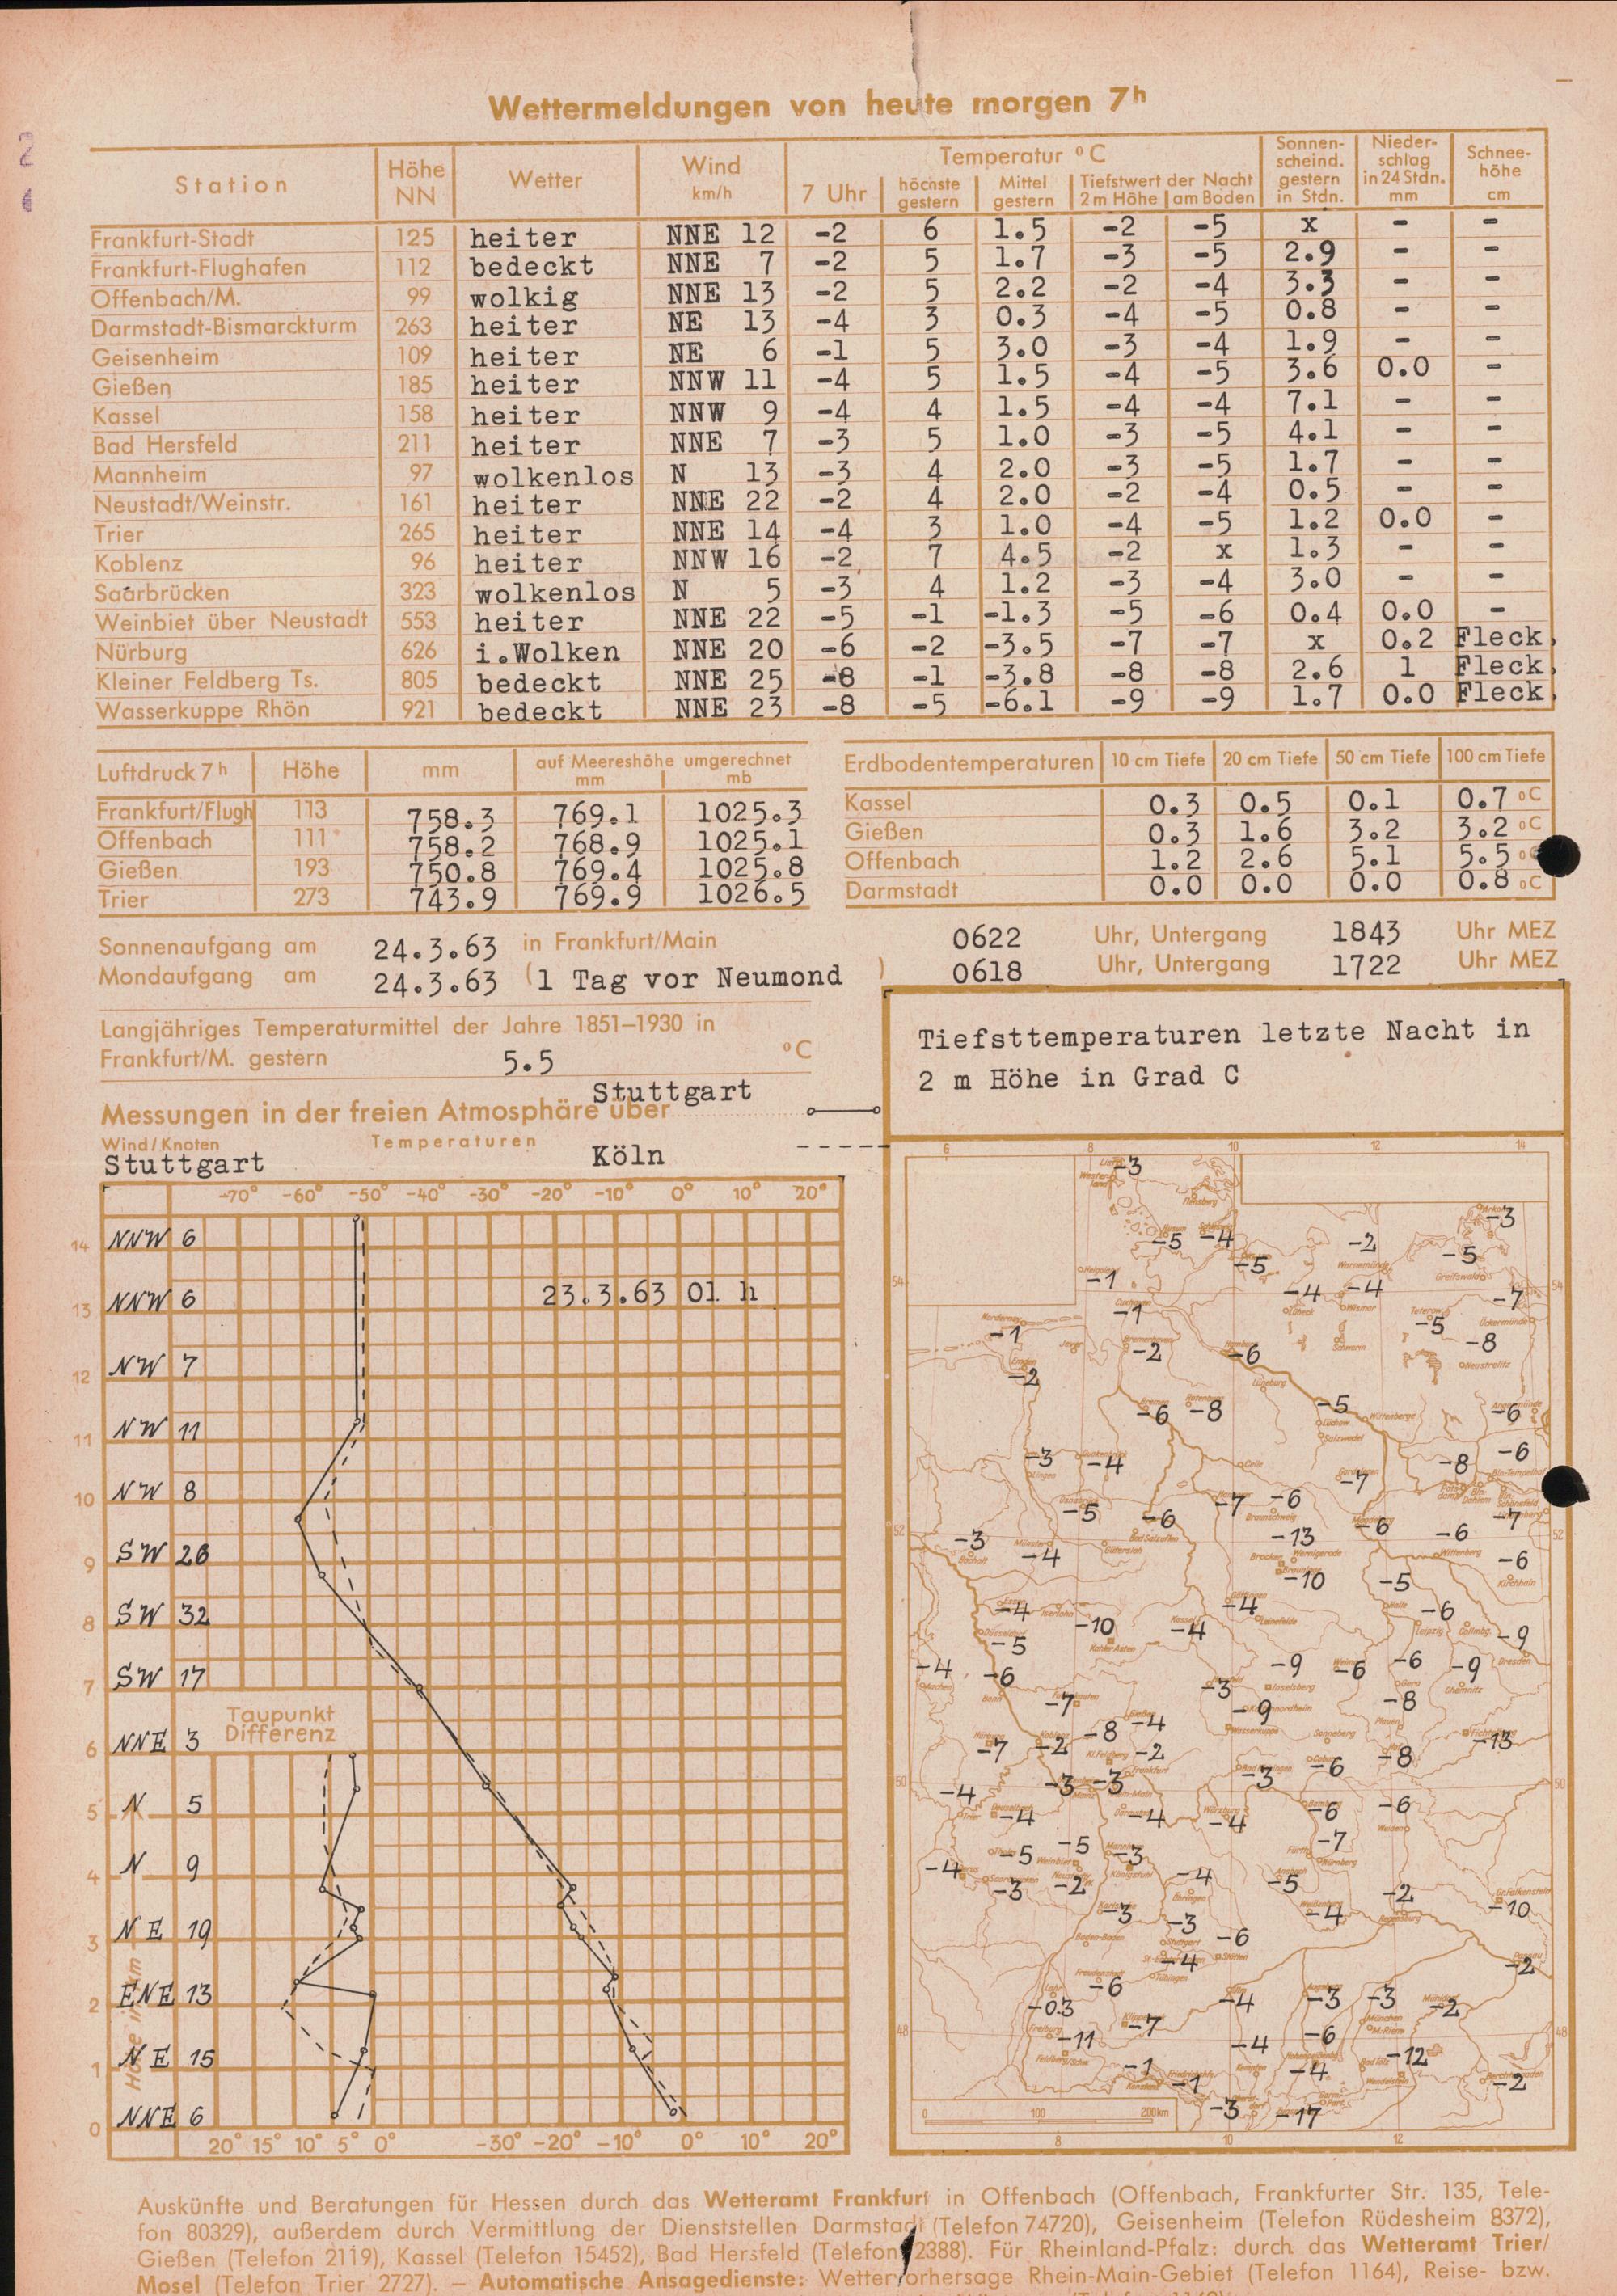 Wettermeldungen von heute morgen 7h
Station Höhe NN Wetter Wind km/h Temperatur °C 7 Uhr höchste gestern Mittel gestern Tiefstwert der Nacht 2 m Höhe am Boden Sonnenscheind. gestern in Stdn. Nieder-schlag in 24 Stdn. mm Schnee-höhe cm
Frankfurt-Stadt 125 heiter NNE 12 -2 6 1.5 -2 -5 x - -
Frankfurt-Flughafen 112 bedeckt NNE 7 -2 5 1.7 -3 -5 2.9 - -
Offenbach/M. 99 wolkig NNE 13 -2 5 2.2 -2 -4 3.3 - -
Darmstadt-Bismarckturm 263 heiter NE 13 -4 3 0.3 -4 -5 0.8 - -
Geisenheim 109 heiter NE 6 -1 5 3.0 -3 -4 1.9 - -
Gießen 185 heiter NNW 11 -4 5 1.5 -4 -5 3.6 0.0 -
Kassel 158 heiter NNW 9 -4 4 1.5 -4 -4 7.1 - -
Bad Hersfeld 211 heiter NNE 7 -3 5 1.0 -3 -5 4.1 - -
Mannheim 97 wolkenlos N 13 -3 4 2.0 -3 -5 1.7 - -
Neustadt/Weinstr. 161 heiter NNE 22 -2 4 2.0 -2 -4 0.5 - -
Trier 265 heiter NNE 14 -4 3 1.0 -4 -5 1.2 0.0 -
Koblenz 96 heiter NNW 16 -2 7 4.5 -2 x 1.3 - -
Saarbrücken 323 wolkenlos N 5 -3 4 1.2 -3 -4 3.0 - -
Weinbiet über Neustadt 553 heiter NNE 22 -5 -1 -1.3 -5 -6 0.4 0.0 -
Nürburg 626 i.Wolken NNE 20 -6 -2 -3.5 -7 -7 x 0.2 Fleck.
Kleiner Feldberg Ts. 805 bedeckt NNE 25 -8 -1 -3.8 -8 -8 2.6 1 Fleck.
Wasserkuppe Rhön 921 bedeckt NNE 23 -8 -5 -6.1 -9 -9 1.7 0.0 Fleck.
Luftdruck 7h Höhe mm auf Meereshöhe umgerechnet mm mb
Frankfurt/Flugh 113 758.3 769.1 1025.3
Offenbach 111 758.2 768.9 1025.1
Gießen 193 750.8 769.4 1025.8
Trier 273 743.9 769.9 1026.5
Erdbodentemperaturen 10 cm Tiefe 20 cm Tiefe 50 cm Tiefe 100 cm Tiefe
Kassel 0.3 0.5 0.1 0.7 °C
Gießen 0.3 1.6 3.2 3.2 °C
Offenbach 1.2 2.6 5.1 5.5 °
Darmstadt 0.0 0.0 0.0 0.8 °C
Sonnenaufgang am 24.3.63 in Frankfurt/Main 0622 Uhr, Untergang 1843 Uhr MEZ
Mondaufgang am 24.3.63 (1 Tag vor Neumond ) 0618 Uhr, Untergang 1722 Uhr MEZ
Langjähriges Temperaturmittel der Jahre 1851–1930 in
Frankfurt/M. gestern 5.5 °C
Stuttgart
Messungen in der freien Atmosphäre über
Wind/Knoten Temperaturen
Stuttgart Köln
-70° -60° -50° -40° -30° -20° -10° 0° 10° 20°
14 NNW 6
13 NNW 6 23.3.63 01 h
12 NW 7
11 NW 11
10 NW 8
9 SW 26
8 SW 32
7 SW 17
Taupunkt
Differenz
6 NNE 3
5 N 5
4 N 9
3 NE 19
2 ENE 13
1 NE 15
0 NNE 6
Höhe in km
20° 15° 10° 5° 0° -30° -20° -10° 0° 10° 20°
Tiefsttemperaturen letzte Nacht in
2 m Höhe in Grad C
6 8 10 12 14
-3
-5 -4 -2 -5 -3
-1 -5 -4 -4 -7
54 54
-1 -1 -5 -8
-2 -2 -6
-6 -8 -5 -6
-3 -4 -7 -8 -6
-5 -6 -7 -6 -6 -6 -7
52 52
-3 -4 -13 -10 -5 -6
-4 -10 -4 -4 -6 -9
-5 -4 -6 -7 -3 -9 -6 -6 -9
-9 -8
-7 -2 -8 -4 -2 -3 -6 -8 -13
50 50
-4 -4 -3 -3 -4 -4 -6 -6
-4 -5 -5 -3 -7
-3 -2 -4 -5 -2 -10
-3 -3 -6 -4
-4 -2
-6 -03 -7 -4 -3 -3 -2
48 48
-11 -4 -6 -12
-1 -1 -4 -2
-3 -17
0 100 200 km
8 10 12
Auskünfte und Beratungen für Hessen durch das Wetteramt Frankfurt in Offenbach (Offenbach, Frankfurter Str. 135, Tele-
fon 80329), außerdem durch Vermittlung der Dienststellen Darmstadt (Telefon 74720), Geisenheim (Telefon Rüdesheim 8372),
Gießen (Telefon 2119), Kassel (Telefon 15452), Bad Hersfeld (Telefon 2388). Für Rheinland-Pfalz: durch das Wetteramt Trier/
Mosel (Telefon Trier 2727). — Automatische Ansagedienste: Wettervorhersage Rhein-Main-Gebiet (Telefon 1164), Reise- bzw.